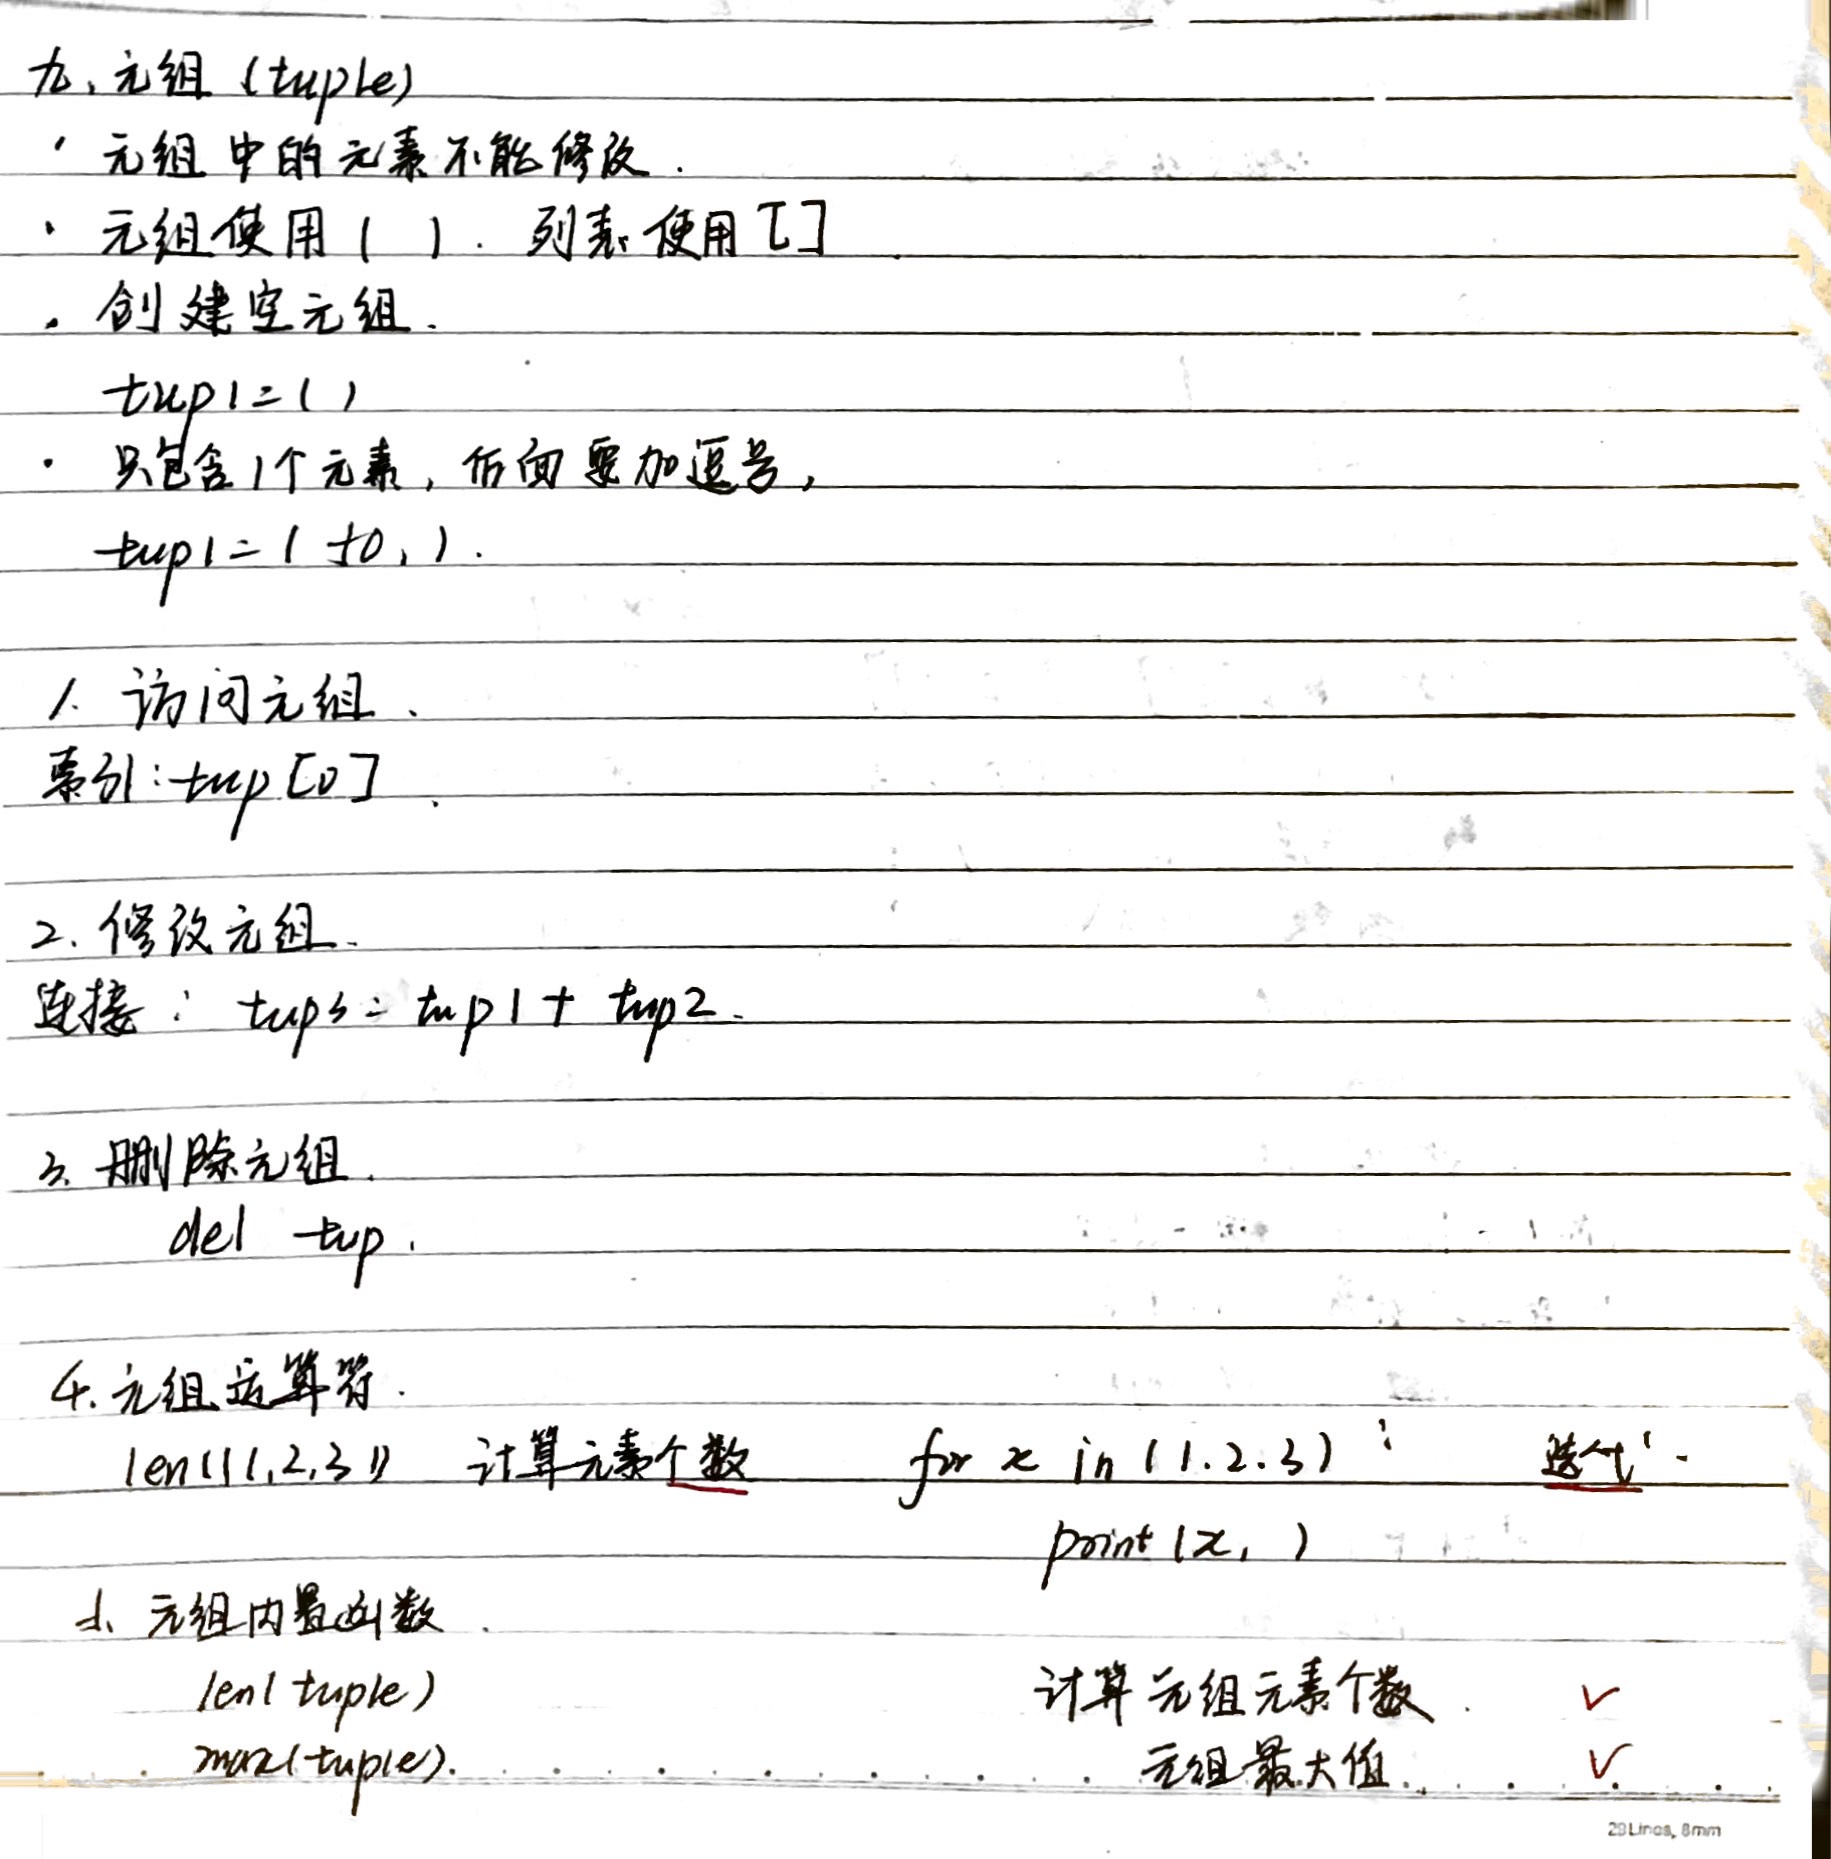 九、元组 (tuple)
· 元组中的元素不能修改.
· 元组使用 ( ). 列表使用 []
· 创建空元组.
tup1=()
· 只包含1个元素, 后面要加逗号,
tup1=(50,).
1. 访问元组.
索引: tup[0].
2. 修改元组.
连接: tup3= tup1+ tup2.
3. 删除元组.
del tup.
4. 元组运算符.
len((1,2,3)) 计算元素个数 for x in (1.2.3): 迭代.
print(x,)
5. 元组内置函数.
len(tuple) 计算元组元素个数. ✓
max(tuple). 元组最大值. ✓
28 Lines, 8mm